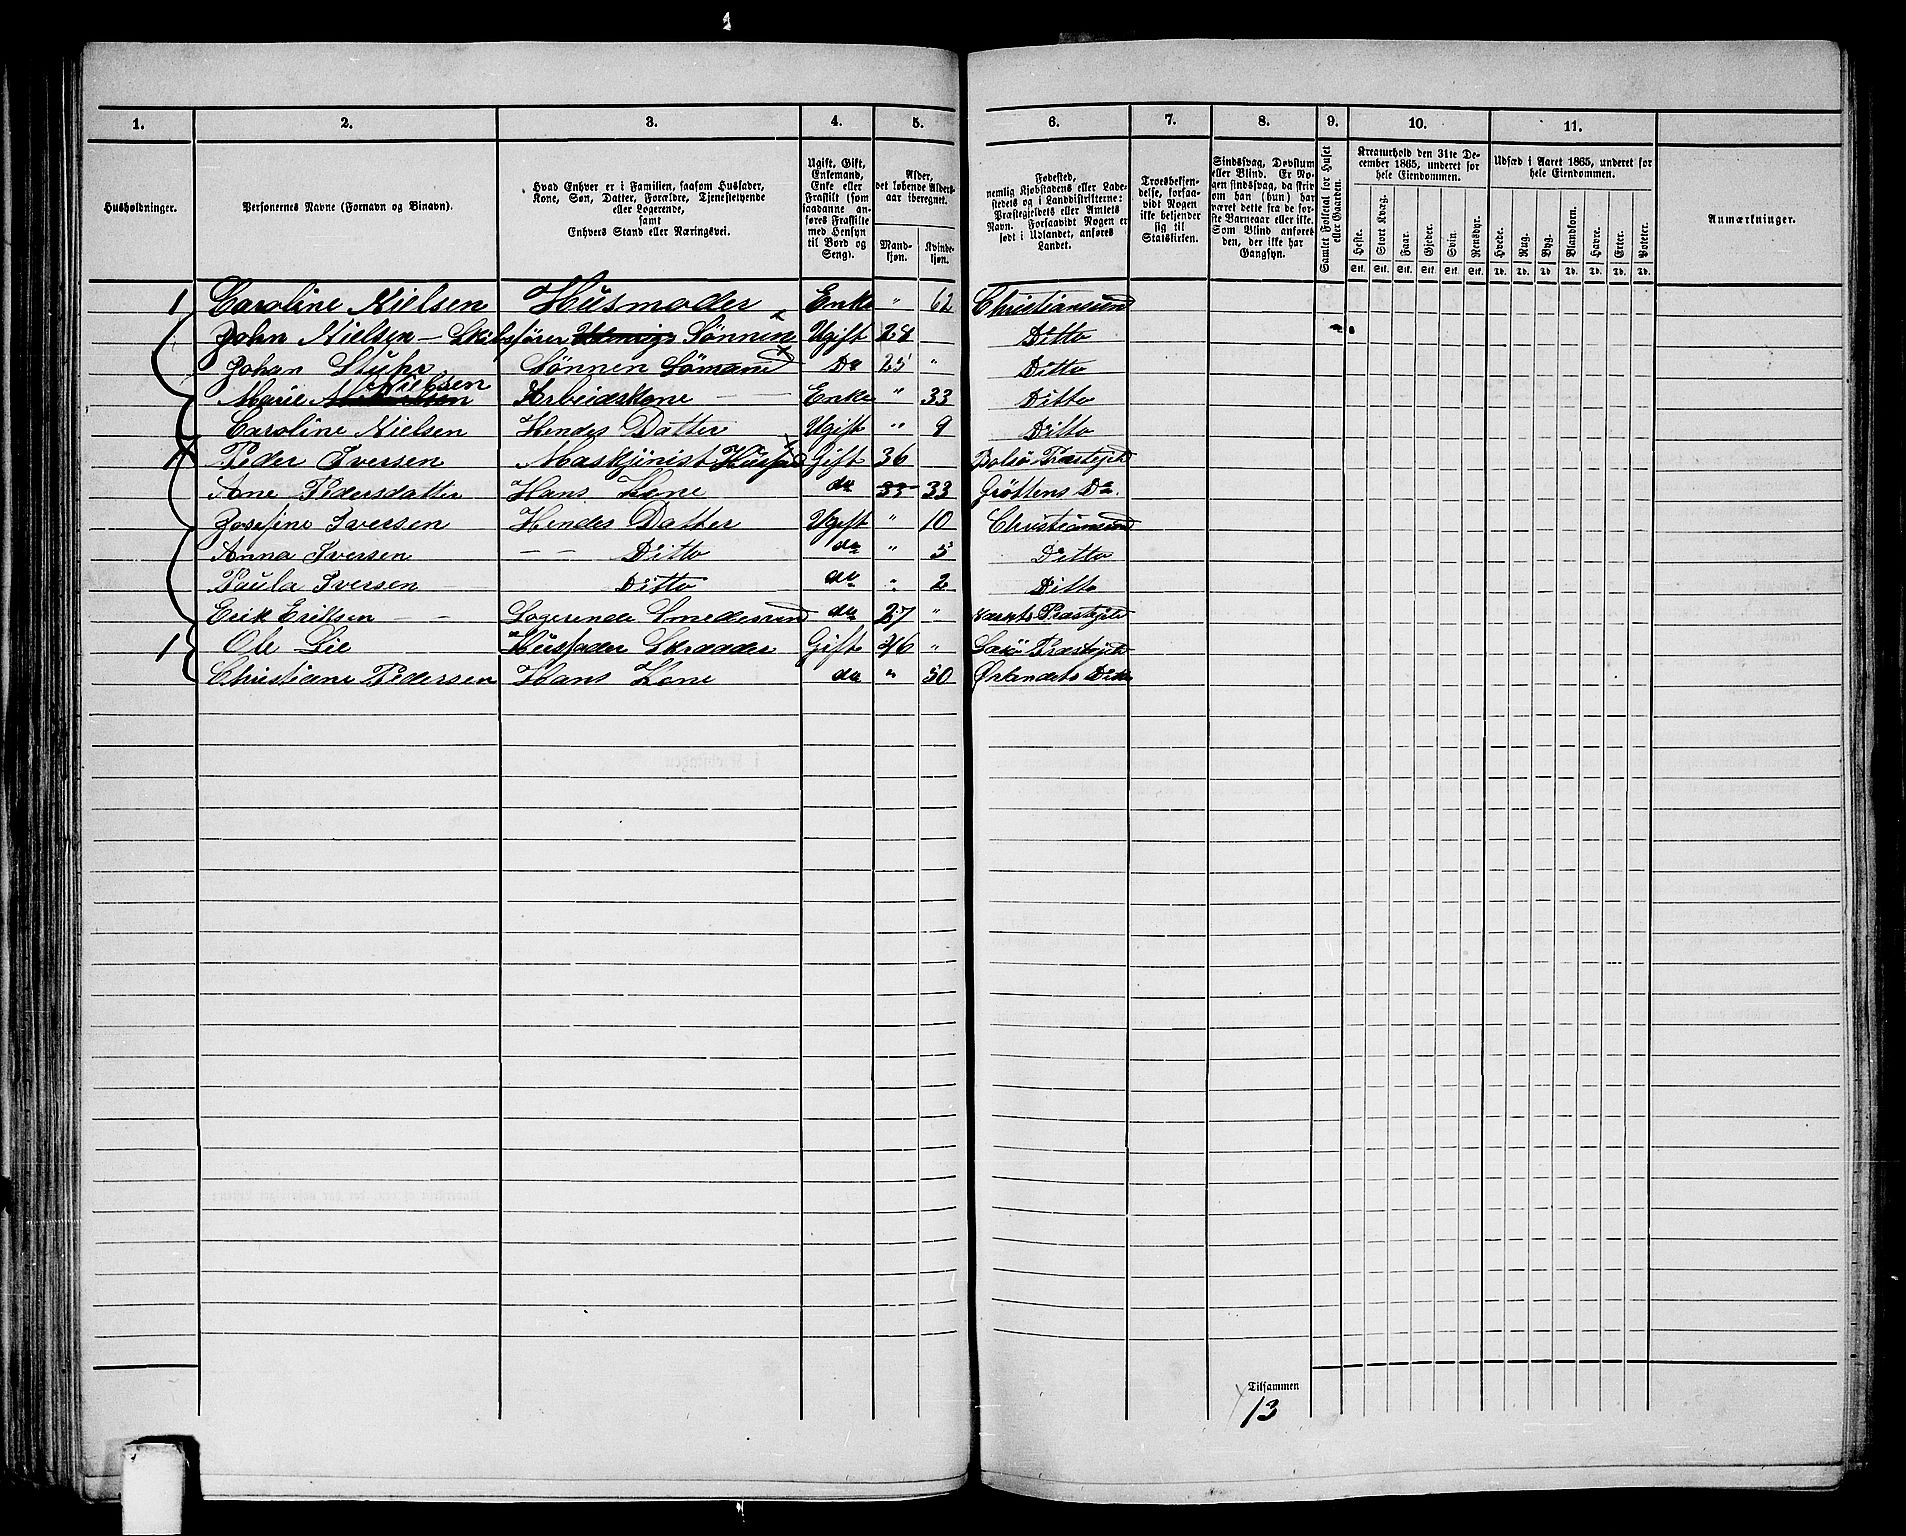 1. 2. 3. 4. 5. 6. 7. 8. 9. 10. 11.
Husholdninger.
Personernes Navne (Fornavn og Binavn).
Hvad Enhver er i Familien, saasom Husfader, Kone, Søn, Datter, Forældre, Tjenestetyende eller Logerende, samt Enhvers Stand eller Næringsvei.
Ugift, Gift, Enkemand, Enke eller Fraskilt (som saadanne anføres Fraskilte med Hensyn til Bord og Seng).
Alder, det løbende Aldersaar iberegnet.
Mandkjøn. Kvindekjøn.
Fødested, nemlig Kjøbstadens eller Ladestedets og i Landdistrikterne: Præstegjeldets eller Amtets Navn. Forsaavidt Nogen er født i Udlandet, anføres Landet.
Troesbekjendelse, forsaavidt Nogen ikke bekjender sig til Statskirken.
Sindssvag, Døvstum eller Blind. Er Nogen sindssvag, da skrives om han (hun) har været dette fra de første Barneaar eller ikke. Som Blind anføres den, der ikke har Gangsyn.
Samlet Folketal for Huset eller Gaarden.
Kreaturhold den 31te December 1865, underet for hele Eiendommen.
Heste. Stort Kvæg. Faar. Gjeder. Svin. Rensdyr.
Udsæd i Aaret 1865, underet for hele Eiendommen.
Hvede. Rug. Byg. Blandkorn. Havre. Erter. Poteter.
Anmærkninger.
Stk. Stk. Stk. Stk. Stk. Stk. Td. Td. Td. Td. Td. Td. Td.
1 Caroline Nielsen Husmoder Enke " 62 Christiansund
John Nielsen – Skibsfører Sønnen Ugift 28 Ditto
Johan Stuhr Sønnen Sømand Do 25 " Ditto
Marie Nielsen Arbeidskone Enke " 33 Ditto
Caroline Nielsen Hendes Datter Ugift " 9 Ditto
1 Peder Iversen Maskjinist Husfad Gift 36 Bolsø Præstegjeld
Ane Pedersdatter Hans Kone do 33 33 Grøttens Do.
Josefine Iversen Hendes Datter Ugift " 10 Christiansund
Anna Iversen – – Ditto do " 5 Ditto
Paula Iversen Ditto do " 2 Ditto
Erik Eriksen – – Logerende Smedesvend do 27 " Præstgjeld
1 Ole Lie Husfader Skrædder Gift 46 " Præstegjeld
Christiane Pedersen Hans Kone do " 50 Ørlandets Ditto
Tilsammen
13